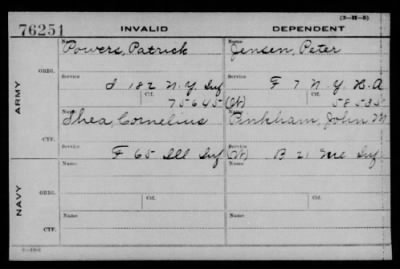 (3-M-5)
76251
INVALID
DEPENDENT
Name
Name
Powers, Patrick
Jensen, Peter
ORIG.
Service
Service
I 182 N.Y. Inf
F 7 N.Y. H.A
ARMY
Ctf.
Ctf.
75645
Name
Shea, Cornelius
Pinkham, John M
CTF.
Service
Service
F 65 Ill Inf
B 21 Me Inf
Name
Name
ORIG.
NAVY
Service
Service
Ctf.
Ctf.
Name
Name
CTF.